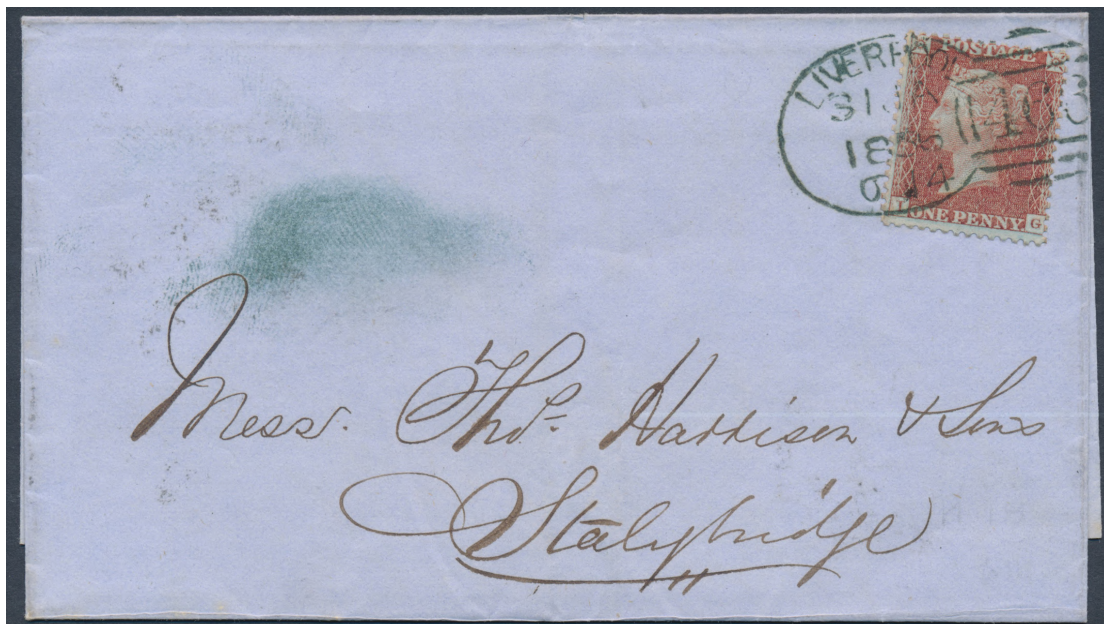 LIVERPOOL
POSTAGE
18
ONE PENNY. G
Mess.rs Tho.s Harrison & Sons
Stalybridge